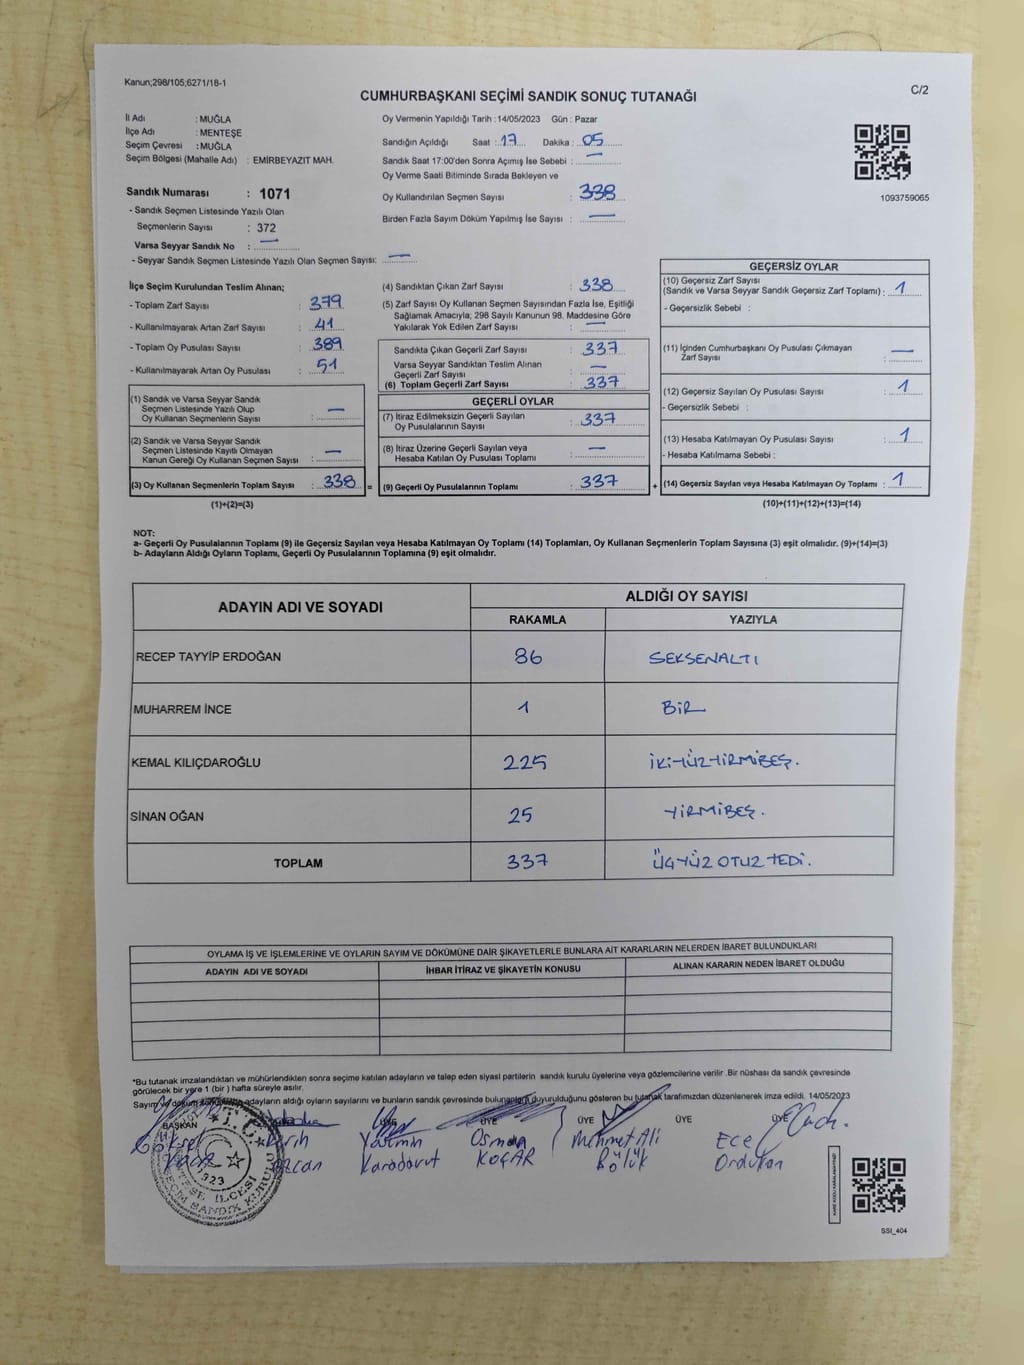 Kanun;298/105;6271/18-1
C/2
CUMHURBAŞKANI SEÇİMİ SANDIK SONUÇ TUTANAĞI
İl Adı : MUĞLA
İlçe Adı : MENTEŞE
Seçim Çevresi : MUĞLA
Seçim Bölgesi (Mahalle Adı) : EMİRBEYAZIT MAH.
Sandık Numarası : 1071
- Sandık Seçmen Listesinde Yazılı Olan
Seçmenlerin Sayısı : 372
Varsa Seyyar Sandık No : —
- Seyyar Sandık Seçmen Listesinde Yazılı Olan Seçmen Sayısı: —
Oy Vermenin Yapıldığı Tarih :14/05/2023 Gün : Pazar
Sandığın Açıldığı Saat : 17 Dakika : 05
Sandık Saat 17:00'den Sonra Açımış İse Sebebi : —
Oy Verme Saati Bitiminde Sırada Bekleyen ve
Oy Kullandırılan Seçmen Sayısı : 338
Birden Fazla Sayım Döküm Yapılmış İse Sayısı : —
1093759065
İlçe Seçim Kurulundan Teslim Alınan;
- Toplam Zarf Sayısı : 379
- Kullanılmayarak Artan Zarf Sayısı : 41
- Toplam Oy Pusulası Sayısı : 389
- Kullanılmayarak Artan Oy Pusulası : 51
(1) Sandık ve Varsa Seyyar Sandık
Seçmen Listesinde Yazılı Olup
Oy Kullanan Seçmenlerin Sayısı : —
(2) Sandık ve Varsa Seyyar Sandık
Seçmen Listesinde Kayıtlı Olmayan
Kanun Gereği Oy Kullanan Seçmen Sayısı : —
(3) Oy Kullanan Seçmenlerin Toplam Sayısı : 338 =
(1)+(2)=(3)
(4) Sandıktan Çıkan Zarf Sayısı : 338
(5) Zarf Sayısı Oy Kullanan Seçmen Sayısından Fazla İse, Eşitliği
Sağlamak Amacıyla; 298 Sayılı Kanunun 98. Maddesine Göre
Yakılarak Yok Edilen Zarf Sayısı : —
Sandıkta Çıkan Geçerli Zarf Sayısı : 337
Varsa Seyyar Sandıktan Teslim Alınan
Geçerli Zarf Sayısı : —
(6) Toplam Geçerli Zarf Sayısı : 337
GEÇERLİ OYLAR
(7) İtiraz Edilmeksizin Geçerli Sayılan
Oy Pusulalarının Sayısı : 337
(8) İtiraz Üzerine Geçerli Sayılan veya
Hesaba Katılan Oy Pusulası Toplamı : —
(9) Geçerli Oy Pusulalarının Toplamı : 337 +
GEÇERSİZ OYLAR
(10) Geçersiz Zarf Sayısı
(Sandık ve Varsa Seyyar Sandık Geçersiz Zarf Toplamı) : 1
- Geçersizlik Sebebi :
(11) İçinden Cumhurbaşkanı Oy Pusulası Çıkmayan
Zarf Sayısı : —
(12) Geçersiz Sayılan Oy Pusulası Sayısı : 1
- Geçersizlik Sebebi :
(13) Hesaba Katılmayan Oy Pusulası Sayısı : 1
- Hesaba Katılmama Sebebi :
(14) Geçersiz Sayılan veya Hesaba Katılmayan Oy Toplamı : 1
(10)+(11)+(12)+(13)=(14)
NOT:
a- Geçerli Oy Pusulalarının Toplamı (9) ile Geçersiz Sayılan veya Hesaba Katılmayan Oy Toplamı (14) Toplamları, Oy Kullanan Seçmenlerin Toplam Sayısına (3) eşit olmalıdır. (9)+(14)=(3)
b- Adayların Aldığı Oyların Toplamı, Geçerli Oy Pusulalarının Toplamına (9) eşit olmalıdır.
ADAYIN ADI VE SOYADI ALDIĞI OY SAYISI
RAKAMLA YAZIYLA
RECEP TAYYİP ERDOĞAN 86 SEKSENALTI
MUHARREM İNCE 1 BİR
KEMAL KILIÇDAROĞLU 225 İKİYÜZYİRMİBEŞ.
SİNAN OĞAN 25 YİRMİBEŞ.
TOPLAM 337 ÜÇYÜZ OTUZ YEDİ.
OYLAMA İŞ VE İŞLEMLERİNE VE OYLARIN SAYIM VE DÖKÜMÜNE DAİR ŞİKAYETLERLE BUNLARA AİT KARARLARIN NELERDEN İBARET BULUNDUKLARI
ADAYIN ADI VE SOYADI İHBAR İTİRAZ VE ŞİKAYETİN KONUSU ALINAN KARARIN NEDEN İBARET OLDUĞU
*Bu tutanak imzalandıktan ve mühürlendikten sonra seçime katılan adayların ve talep eden siyasi partilerin sandık kurulu üyelerine veya gözlemcilerine verilir .Bir nüshası da sandık çevresinde
görülecek bir yere 1 (bir ) hafta süreyle asılır.
Sayım ve döküm sonucunda adayların aldığı oyların sayılarını ve bunların sandık çevresinde bulunanlara duyurulduğunu gösteren bu tutanak tarafımızdan düzenlenerek imza edildi. 14/05/2023
BAŞKAN ÜYE ÜYE ÜYE ÜYE ÜYE
Göksel Yasmin Osman Mehmet Ali Ece
Özcan Karadavut KOÇAR Bölük Ordukan
T.C.
1923
SSI_404